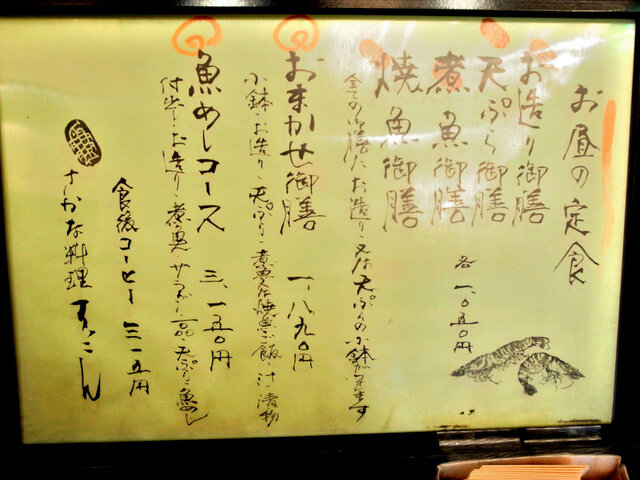 お昼の定食
お造り御膳
天ぷら御膳
煮魚御膳
各 一、〇五〇円
焼魚御膳
全ての御膳にお造り又は天ぷらの小鉢がつきます
おまかせ御膳 一、八九〇円
小鉢・お造り・天ぷら・煮魚又は焼魚・ご飯・汁・漬物
魚めしコース 三、一五〇円
付出し・お造り・煮魚 サラダ 一品・天ぷら 魚めし
食後コーヒー 三一五円
さかな料理